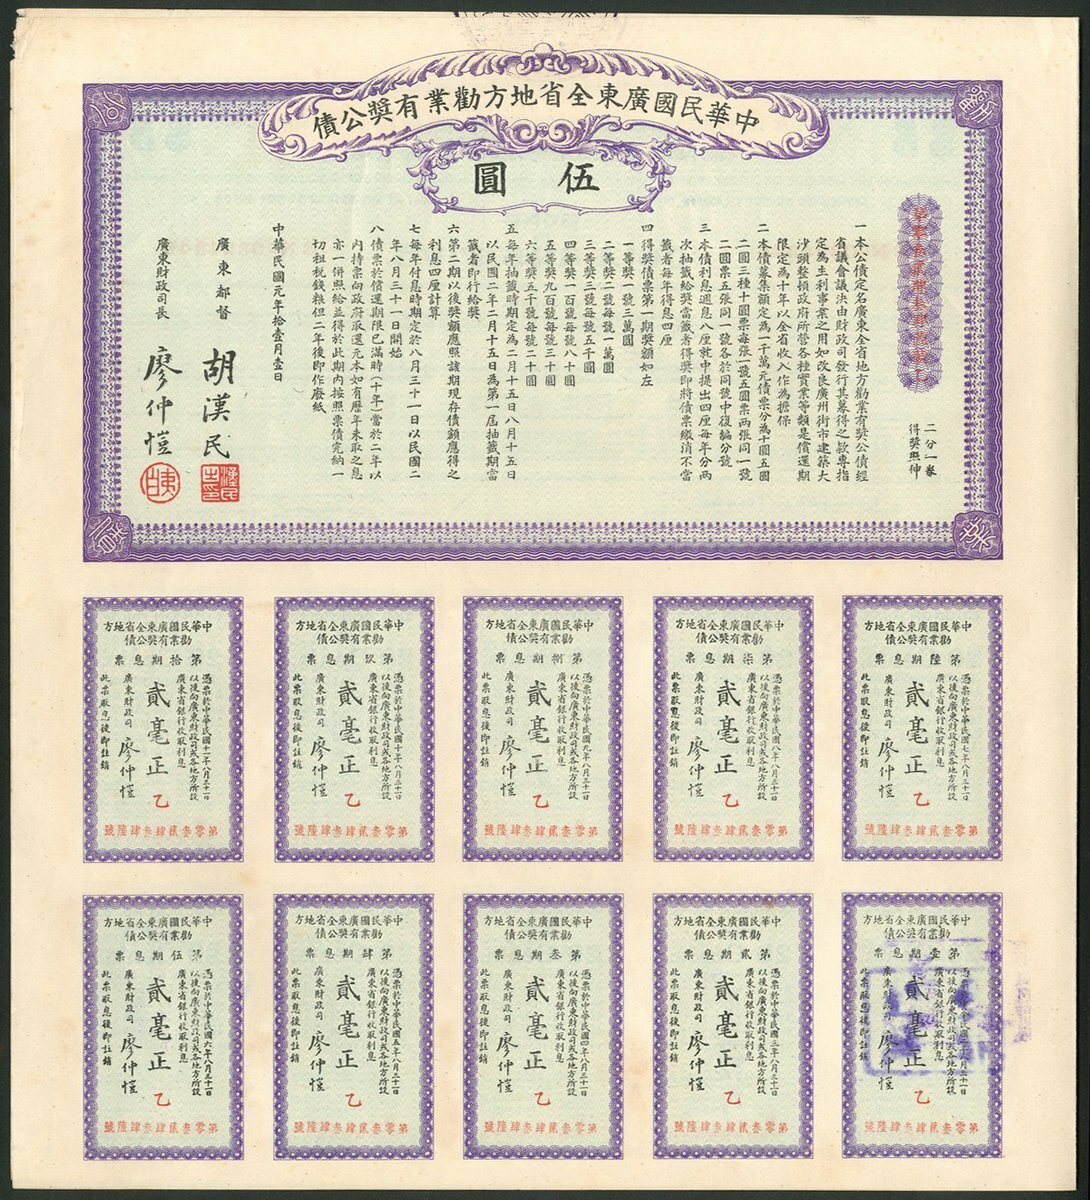 中華民國廣東全省地方勸業有奬公債
伍圓
二分一券
得奬照伸
一本公債定名廣東全省地方勸業有奬公債經
省議會議決由財政司發行其募得之款專指
定為生利事業之用如改良廣州街市建築大
沙頭整頓政府所營各種實業等類是償還期
限定為十年以全省收入作為擔保
二本債募集額定為一千萬元債票分為十圓五圓
二圓三種十圓票每張一號五圓票兩張同一號
二圓票五張同一號各於同號中復編分號
三本債利息週息八厘就中提出四厘每年分兩
次抽籤給奬當籤者得奬即將債票繳消不當
籤者每年得息四厘
四得奬債票第一期奬額如左
一等奬一號三萬圓
二等奬二號每號一萬圓
三等奬三號每號五千圓
四等奬一百號每號八十圓
五等奬九百號每號三十圓
六等奬五千號每號二十圓
五每年抽籤時期定為二月十五日八月十五日
以民國二年二月十五日為第一屆抽籤期當
籤者即行給奬
六第二期以後奬額應照該期現存債額應得之
利息四厘計算
七每年付息時期定於八月三十一日以民國二
年八月三十一日開始
八債票於償還期限已滿時（十年）當於二年以
內持票向政府取還元本如有曆年未取之息
亦一併照給並得於此期內按照票債完納一
切租稅錢粮但二年後即作廢紙
中華民國元年拾壹月壹日
廣東都督 胡漢民
廣東財政司長 廖仲愷
中華民國廣東全省地方
勸業有奬公債
第陸期息票
憑票於中華民國七年八月三十一日
以後向廣東財政司或各地方所設
廣東省銀行收取利息
貳毫正
乙
廣東財政司 廖仲愷
此票取息後即註銷
第零叁貳肆叁肆陸號
中華民國廣東全省地方
勸業有奬公債
第柒期息票
憑票於中華民國八年八月三十一日
以後向廣東財政司或各地方所設
廣東省銀行收取利息
貳毫正
乙
廣東財政司 廖仲愷
此票取息後即註銷
第零叁貳肆叁肆陸號
中華民國廣東全省地方
勸業有奬公債
第捌期息票
憑票於中華民國九年八月三十一日
以後向廣東財政司或各地方所設
廣東省銀行收取利息
貳毫正
乙
廣東財政司 廖仲愷
此票取息後即註銷
第零叁貳肆叁肆陸號
中華民國廣東全省地方
勸業有奬公債
第玖期息票
憑票於中華民國十年八月三十一日
以後向廣東財政司或各地方所設
廣東省銀行收取利息
貳毫正
乙
廣東財政司 廖仲愷
此票取息後即註銷
第零叁貳肆叁肆陸號
中華民國廣東全省地方
勸業有奬公債
第拾期息票
憑票於中華民國十一年八月三十一日
以後向廣東財政司或各地方所設
廣東省銀行收取利息
貳毫正
乙
廣東財政司 廖仲愷
此票取息後即註銷
第零叁貳肆叁肆陸號
中華民國廣東全省地方
勸業有奬公債
第壹期息票
憑票於中華民國二年八月三十一日
以後向廣東財政司或各地方所設
廣東省銀行收取利息
貳毫正
乙
廣東財政司 廖仲愷
此票取息後即註銷
第零叁貳肆叁肆陸號
中華民國廣東全省地方
勸業有奬公債
第貳期息票
憑票於中華民國三年八月三十一日
以後向廣東財政司或各地方所設
廣東省銀行收取利息
貳毫正
乙
廣東財政司 廖仲愷
此票取息後即註銷
第零叁貳肆叁肆陸號
中華民國廣東全省地方
勸業有奬公債
第叁期息票
憑票於中華民國四年八月三十一日
以後向廣東財政司或各地方所設
廣東省銀行收取利息
貳毫正
乙
廣東財政司 廖仲愷
此票取息後即註銷
第零叁貳肆叁肆陸號
中華民國廣東全省地方
勸業有奬公債
第肆期息票
憑票於中華民國五年八月三十一日
以後向廣東財政司或各地方所設
廣東省銀行收取利息
貳毫正
乙
廣東財政司 廖仲愷
此票取息後即註銷
第零叁貳肆叁肆陸號
中華民國廣東全省地方
勸業有奬公債
第伍期息票
憑票於中華民國六年八月三十一日
以後向廣東財政司或各地方所設
廣東省銀行收取利息
貳毫正
乙
廣東財政司 廖仲愷
此票取息後即註銷
第零叁貳肆叁肆陸號